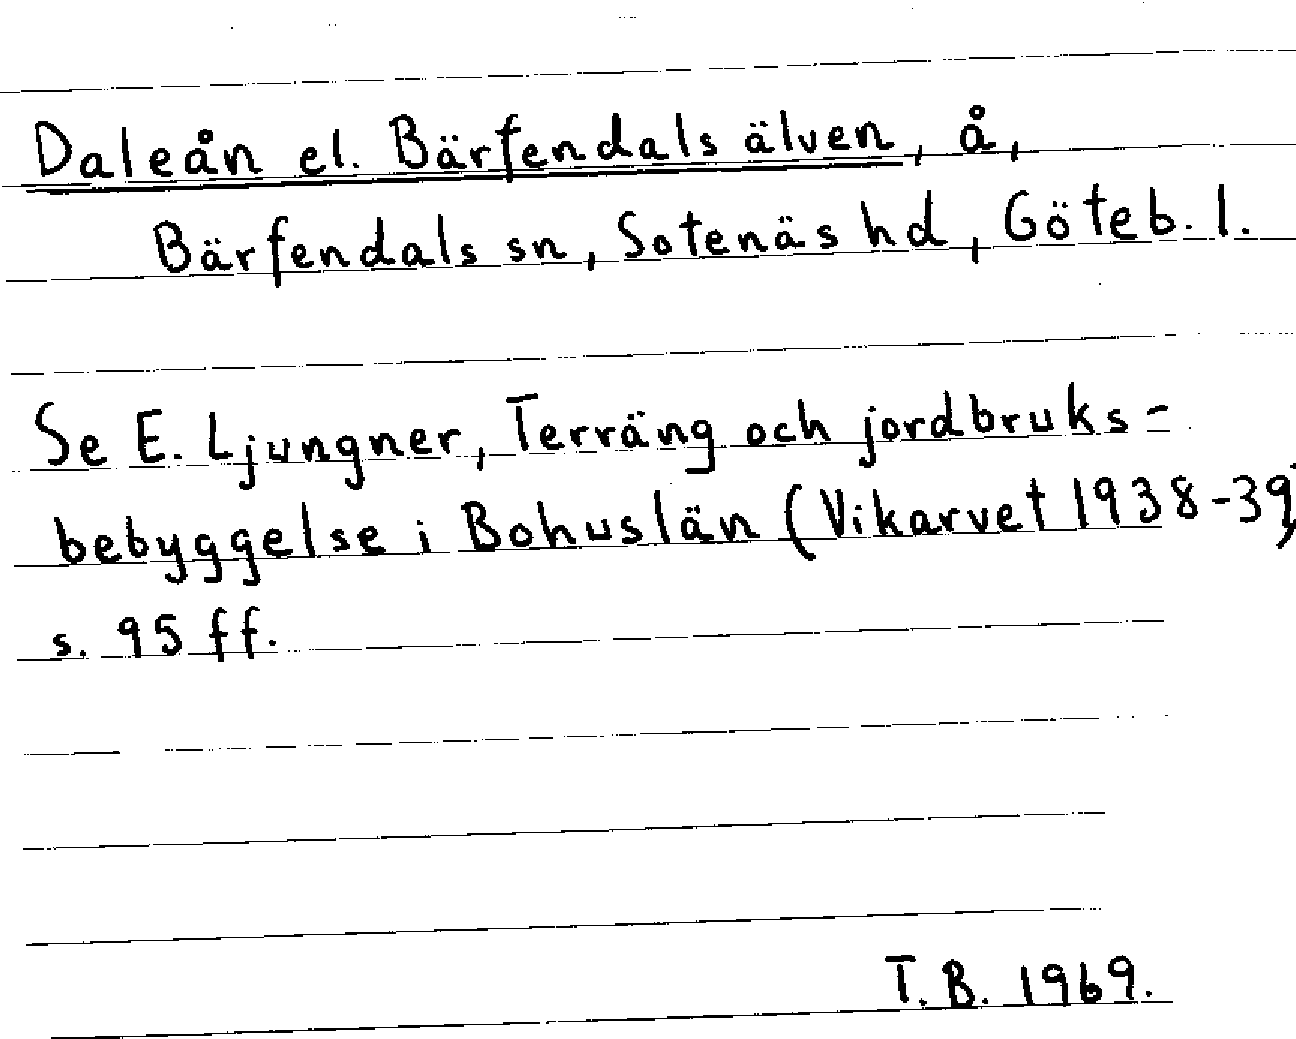 Daleån el. Bärfendals älven, å,
Bärfendals sn, Sotenäs hd, Göteb. l.
Se E. Ljungner, Terräng och jordbruks=
bebyggelse i Bohuslän (Vikarvet 1938-39)
s. 95 ff.
T. B. 1969.